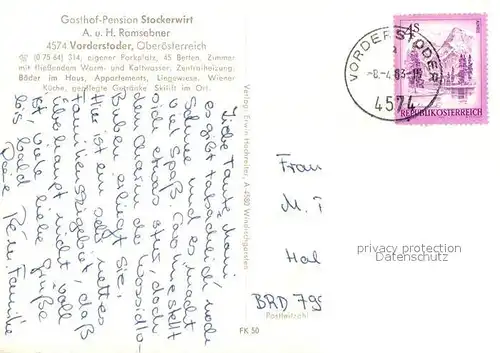 Gasthof-Pension Stockerwirt
A. u. H. Ramsebner
4574 Vorderstoder, Oberösterreich
(0 75 64) 314, eigener Parkplatz, 45 Betten, Zimmer
mit fließendem Warm- und Kaltwasser, Zentralheizung,
Bäder im Haus, Appartements, Liegewiese, Wiener
Küche, gepflegte Getränke Skilift im Ort.
Liebe Tante
es gibt tatsächlich noch
Schnee und das macht
viel Spaß. Caroline stellt
sich etwas
dem Charme der
Buben erliegt sie.
Hier ist ein sehr nettes
Familienskigebiet, daß
überhaupt nicht voll
ist viele liebe Grüße
bis bald
Familie
Verlag Erwin Hochreiter, A-4580 Windischgarsten
VORDERSTODER
-8.-4.83-
4574
4S
REPUBLIK ÖSTERREICH
Frau
M.
Hal
BRD 795
Postleitzahl
privacy protection
Datenschutz
FK 50